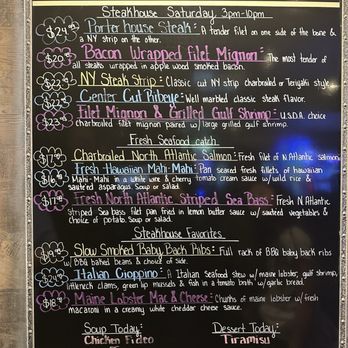 Steakhouse Saturday 3pm-10pm
Porterhouse Steak: A tender filet on one side of the bone &
a NY strip on the other.
Bacon Wrapped Filet Mignon: The most tender of
all steaks wrapped in apple wood smoked bacon.
NY Steak Strip: Classic cut NY strip charbroiled or Teriyaki style.
Center Cut Ribeye: Well marbled classic steak flavor.
Filet Mignon & Grilled Gulf Shrimp: U.S.D.A. choice
charbroiled filet mignon paired w/ large grilled gulf shrimp.
Fresh Seafood catch
Charbroiled North Atlantic Salmon: Fresh filet of N Atlantic salmon
Fresh Hawaiian Mahi-Mahi: Pan seared fresh fillets of hawaiian
Mahi-Mahi in a white wine & cherry tomato cream sauce w/ wild rice &
sautéed asparagus. Soup or salad.
Fresh North Atlantic Striped Sea Bass: Fresh N Atlantic
striped Sea bass filet pan fried in lemon butter sauce w/ sautéed vegetables &
choice of potato. Soup or salad.
Steakhouse Favorites
Slow Smoked Baby Back Ribs: Full rack of BBQ baby back ribs
BBQ baked beans & choice of side.
Italian Cioppino: A Italian Seafood stew w/ maine lobster, gulf shrimp,
littleneck clams, green lip mussels & fish in a tomato broth w/ garlic bread.
Maine Lobster Mac & Cheese: Chunks of maine lobster w/ fresh
macaroni in a creamy white cheddar cheese sauce.
Soup Today:
Chicken Fideo
Dessert Today:
Tiramisu